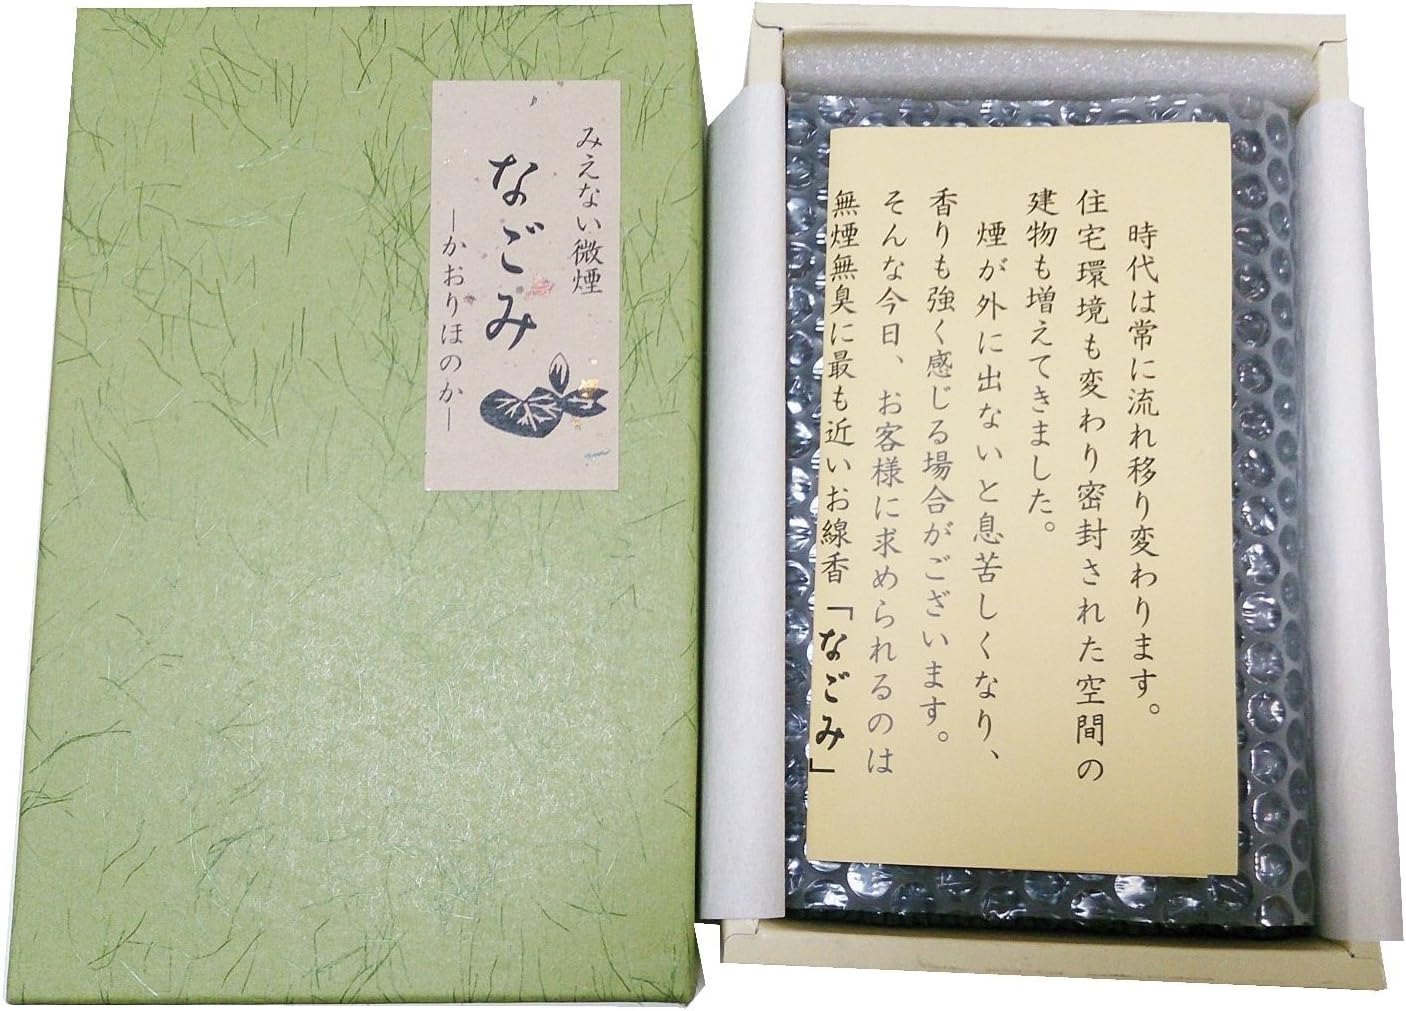 みえない微煙
なごみ
―かおりほのか―
時代は常に流れ移り変わります。
住宅環境も変わり密封された空間の
建物も増えてきました。
煙が外に出ないと息苦しくなり、
香りも強く感じる場合がございます。
そんな今日、お客様に求められるのは
無煙無臭に最も近いお線香「なごみ」